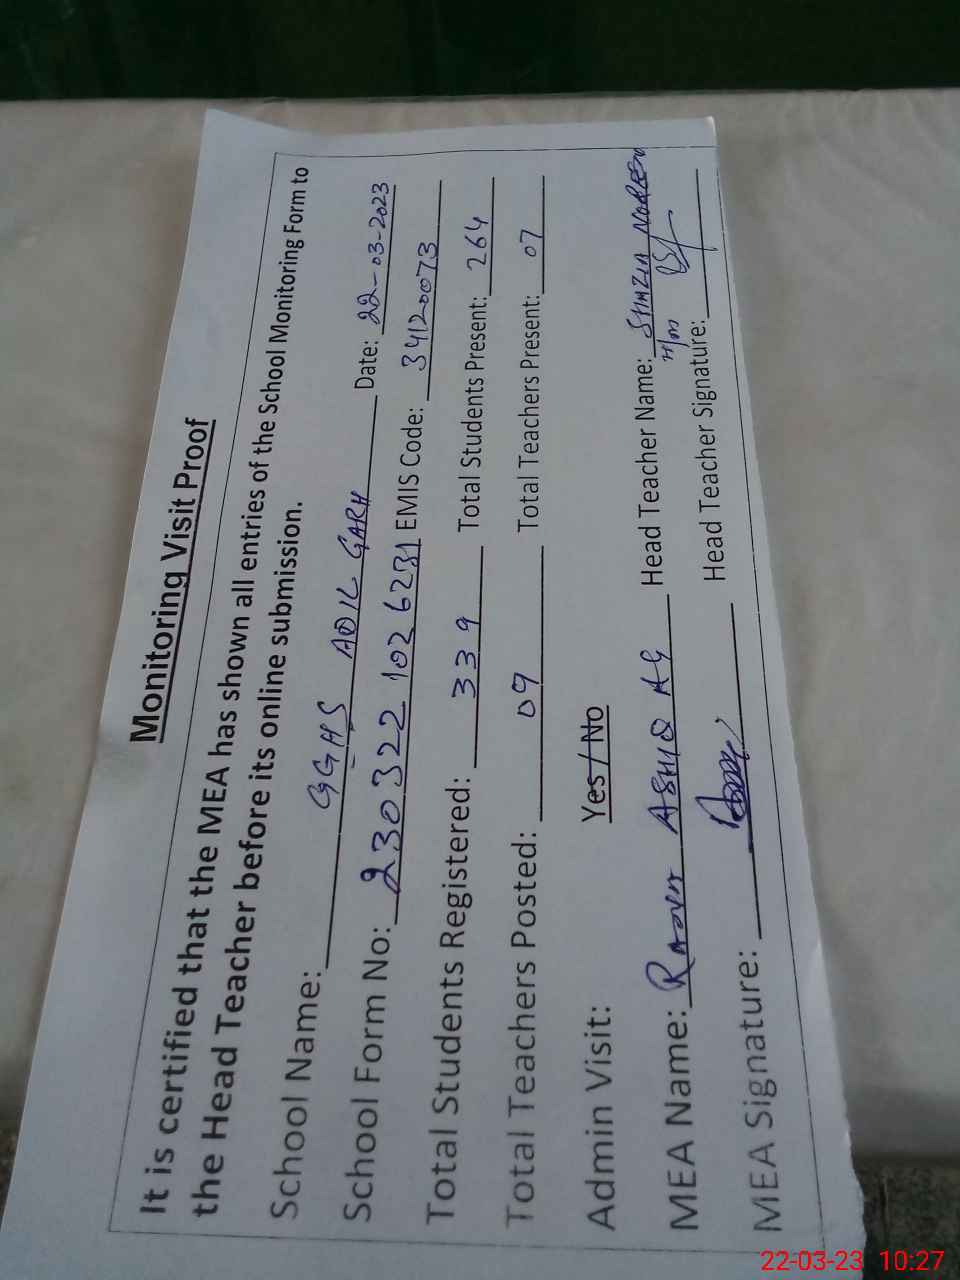 Monitoring Visit Proof
It is certified that the MEA has shown all entries of the School Monitoring Form to
the Head Teacher before its online submission.
School Name: GGHS ADIL GARH Date: 22-03-2023
School Form No: 230322 1026231 EMIS Code: 34120073
Total Students Registered: 339 Total Students Present: 264
Total Teachers Posted: 09 Total Teachers Present: 07
Admin Visit: Yes / No
MEA Name: ASHIQ Head Teacher Name:
H/M
MEA Signature: Head Teacher Signature:
22-03-23 10:27